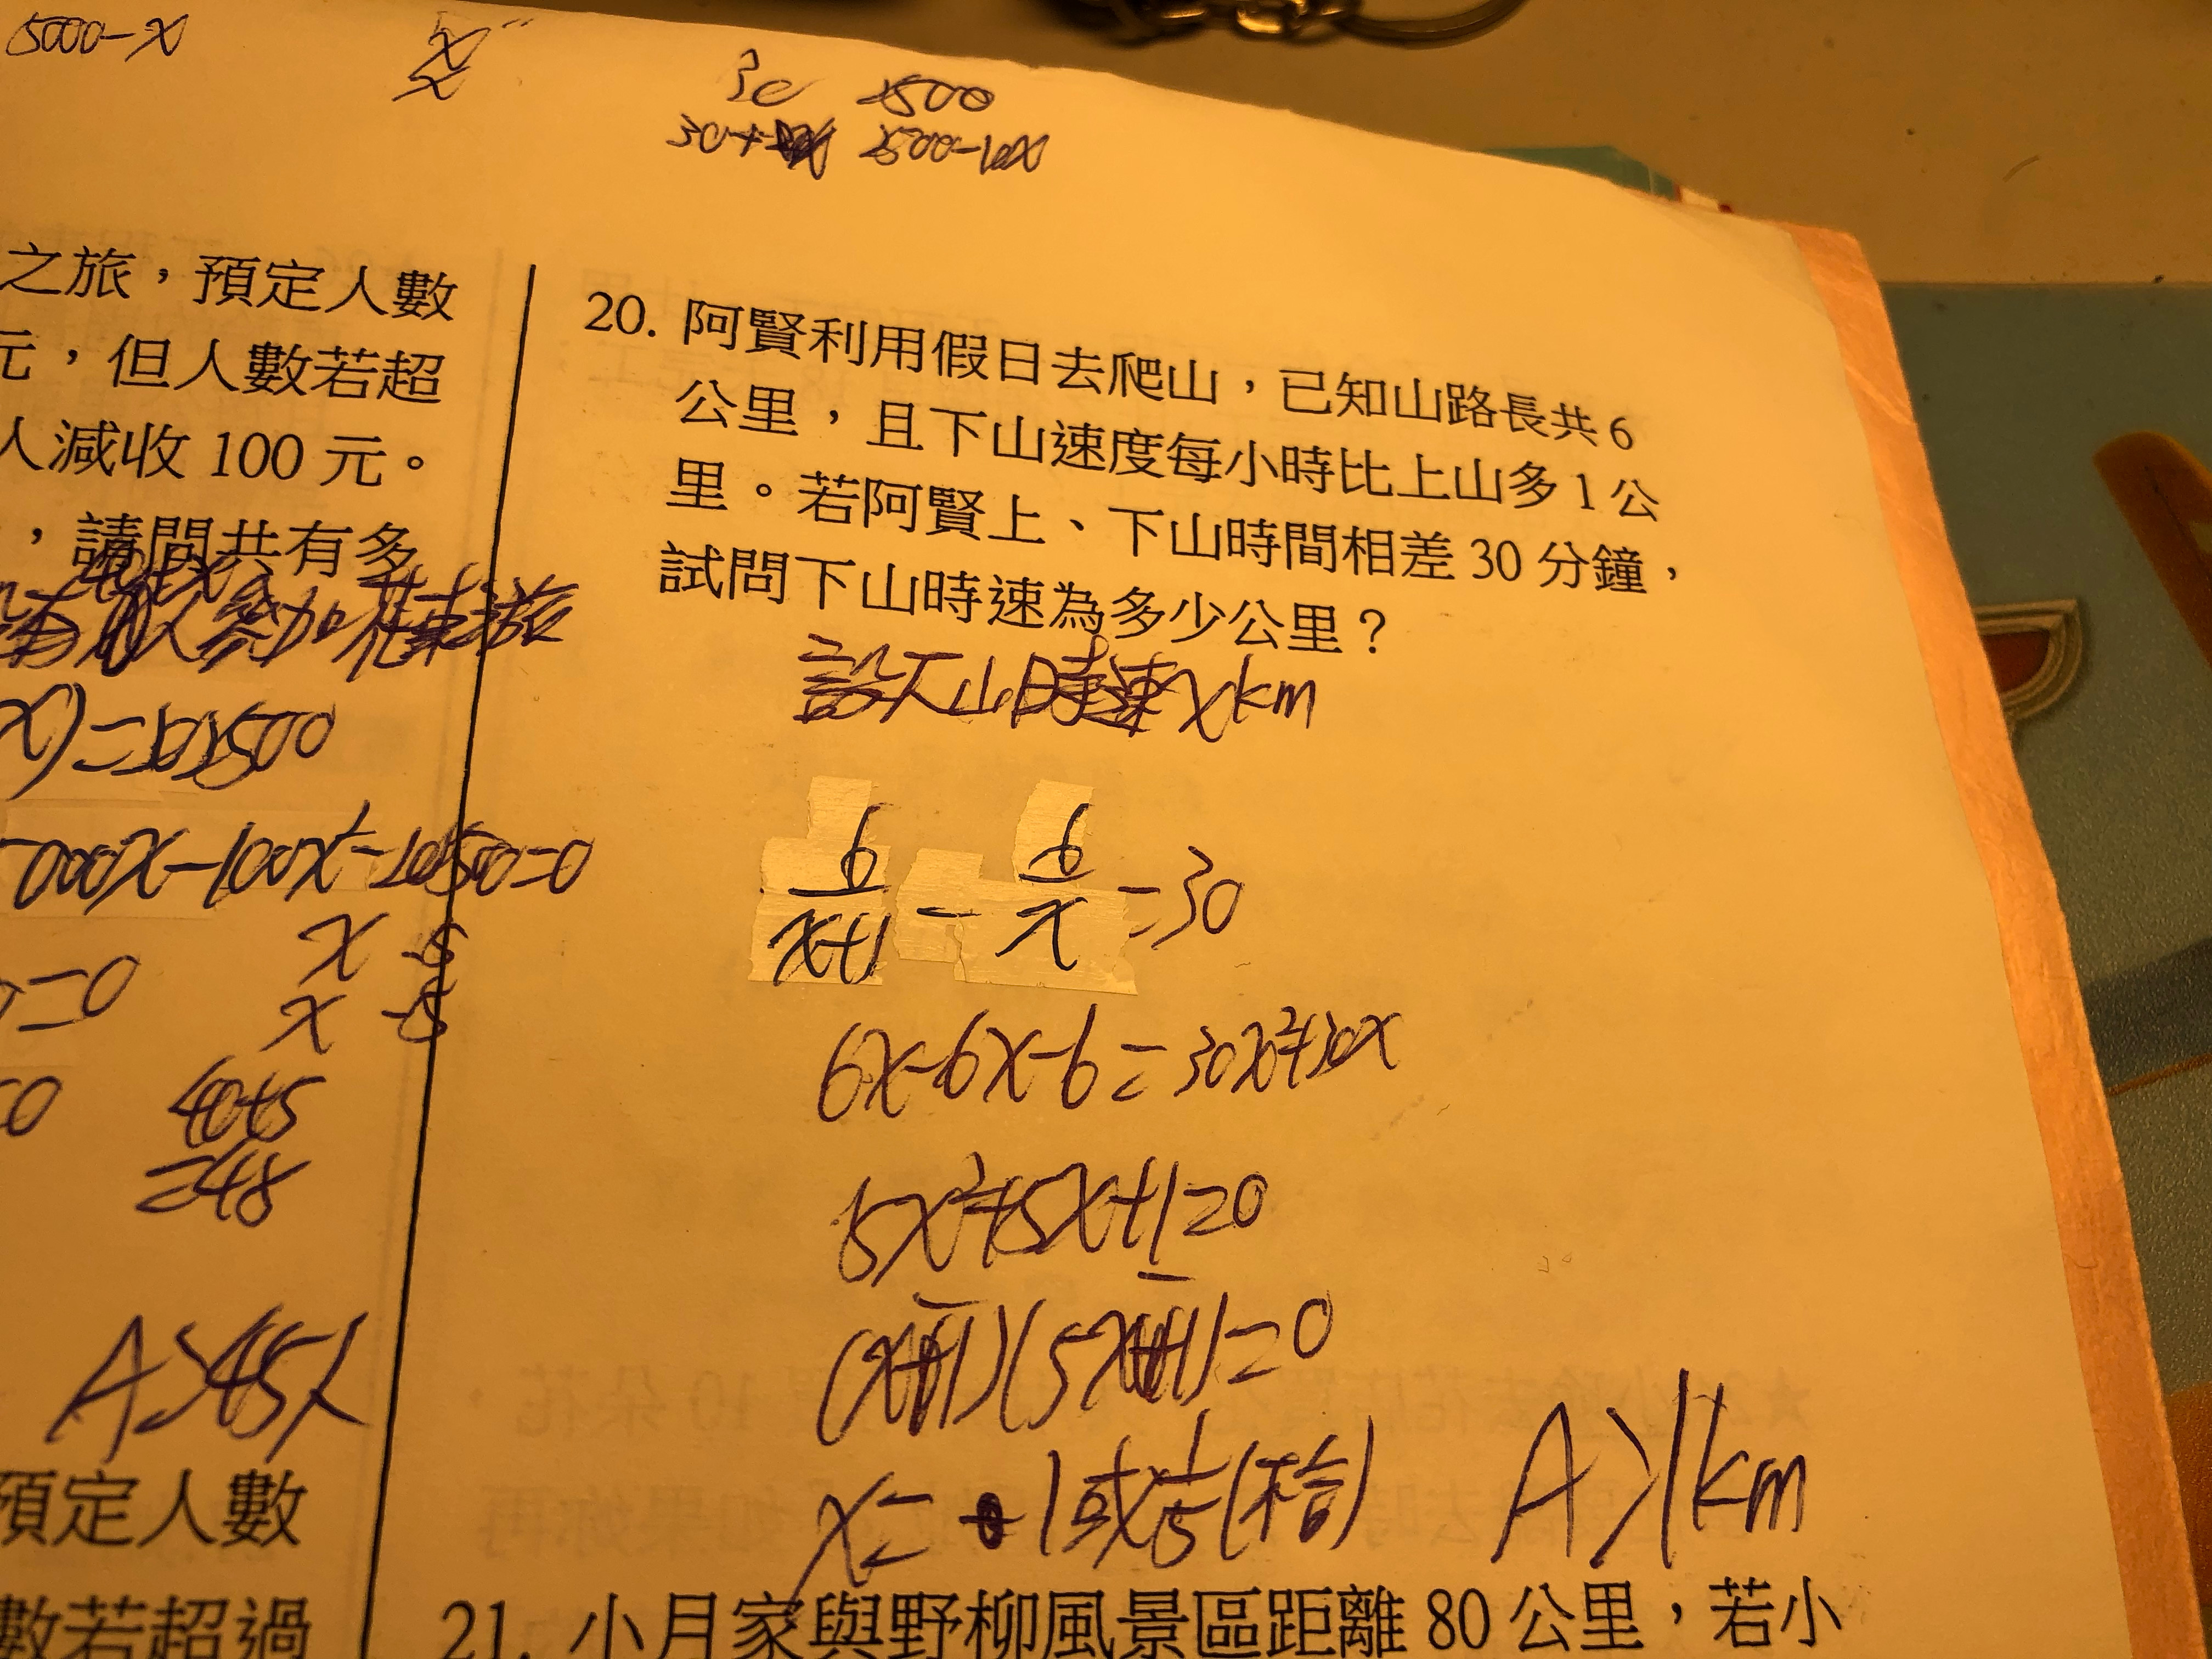 5000-x
x
x
30 2500
30+ 2500-10x
之旅，預定人數
元，但人數若超
人減收 100 元。
，請問共有多
人參加花東之旅
x)=101500
000x-100x²-10500=0
x -5
=0 x -5
=0 40+5
=45
A>45人
預定人數
數若超過
20. 阿賢利用假日去爬山，已知山路長共 6
公里，且下山速度每小時比上山多 1 公
里。若阿賢上、下山時間相差 30 分鐘，
試問下山時速為多少公里？
設下山時速xkm
6/(x+1) - 6/x = 30
6x-6x-6=30x²+30x
5x²+5x+1=0
(x+1)(5x+1)=0
x= 1或1/5(不合) A>1km
21. 小月家與野柳風景區距離 80 公里，若小